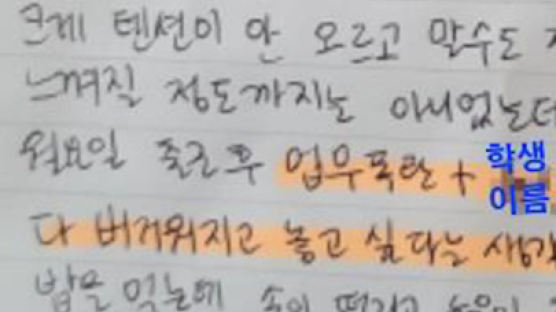 크게 텐션이 안 오르고 말수도
느껴질 정도까지는 아니었는데
월요일 출근 후 업무폭탄 + 학생 이름
다 버거워지고 놓고 싶다는 생각
밥을 먹는데